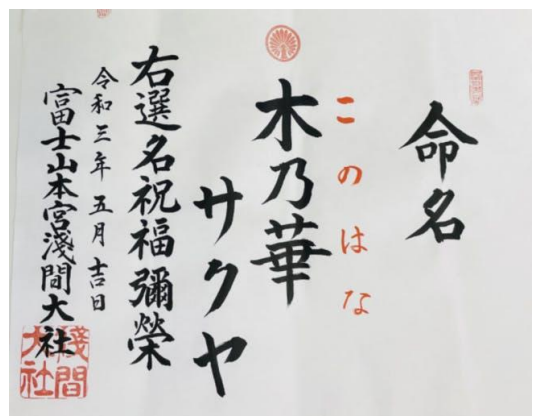 命名
このはな
木乃華
サクヤ
右選名祝福彌榮
令和三年五月吉日
富士山本宮淺間大社
淺間大社